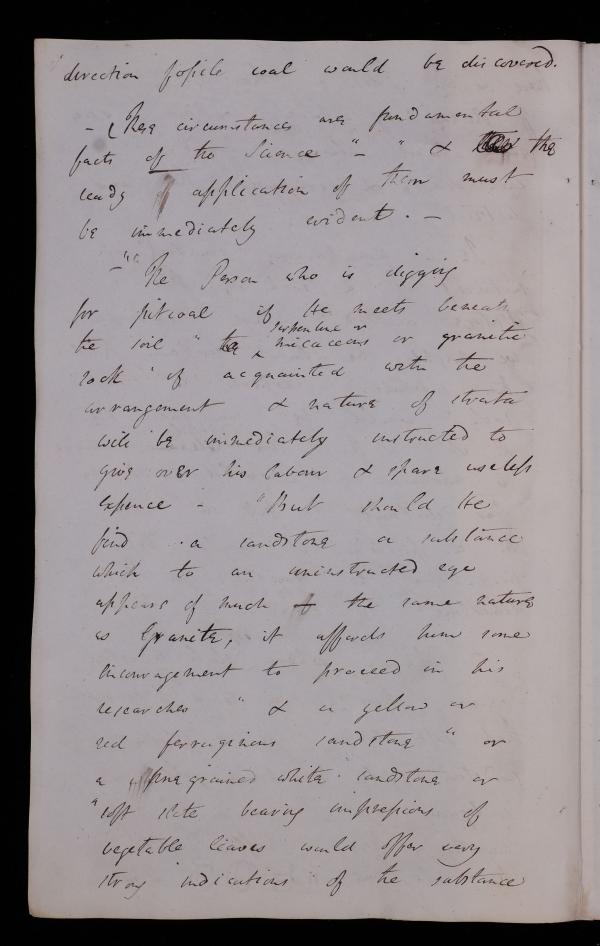 direction fossile coal would be discovered.
- (These circumstances are fundamental
facts of the Science " - " & the
ready application of them must
be immediately evident. -
- " "The Person who is digging
for pitcoal if He meets beneath
serpentine or
the soil " the micaceous or granitic
rock " if acquainted with the
arrangement & nature of strata
will be immediately instructed to
give over his labour & spare useless
expence - "But should He
find a sandstone a substance
which to an uninstructed eye
appears of much of the same nature
as Granite, it affords him some
encouragement to proceed in his
researches " & a yellow or
red ferruginous sandstone " or
a fine grained white sandstone or
"soft slate bearing impressions of
vegetable leaves would offer very
strong indications of the substance